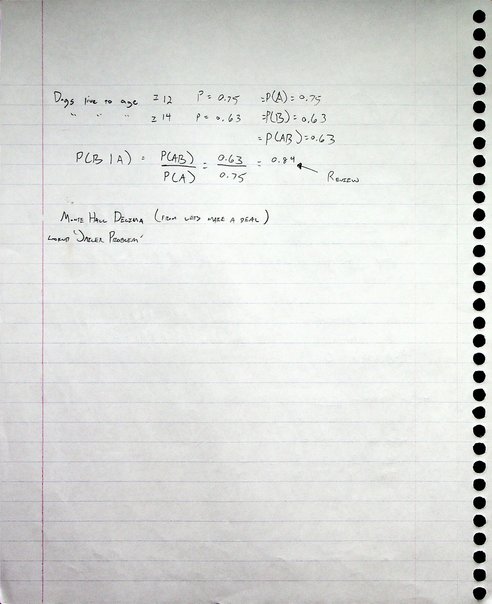 Dogs live to age ≥ 12 P = 0.75 = P(A) = 0.75
" " " ≥ 14 P = 0.63 = P(B) = 0.63
= P(AB) = 0.63
P(B|A) = P(AB) / P(A) = 0.63 / 0.75 = 0.84
Review
Monte Hall Delima (from lets make a deal)
Lookup 'Jailer Problem'